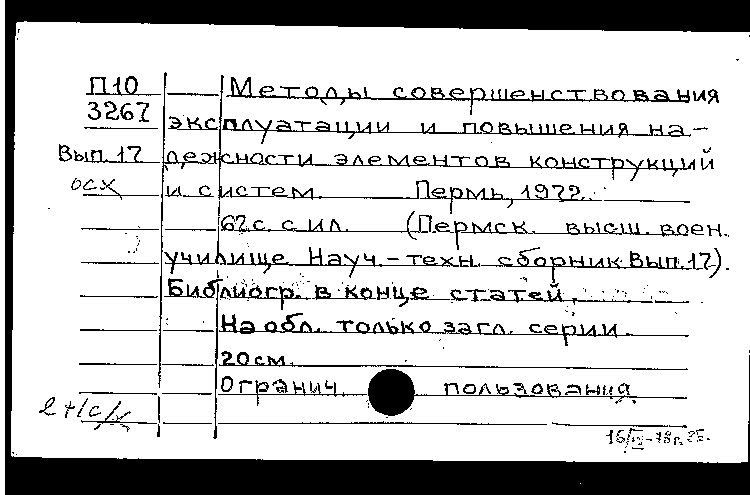 П10 Методы совершенствования
3267 эксплуатации и повышения на-
Вып. 17 дежности элементов конструкций
осх и систем. Пермь, 1972.
67 с. с ил. (Пермск. высш. воен.
училище Науч.-техн. сборник Вып. 17).
Библиогр. в конце статей.
На обл. только загл. серии.
20 см.
Огранич. пользования